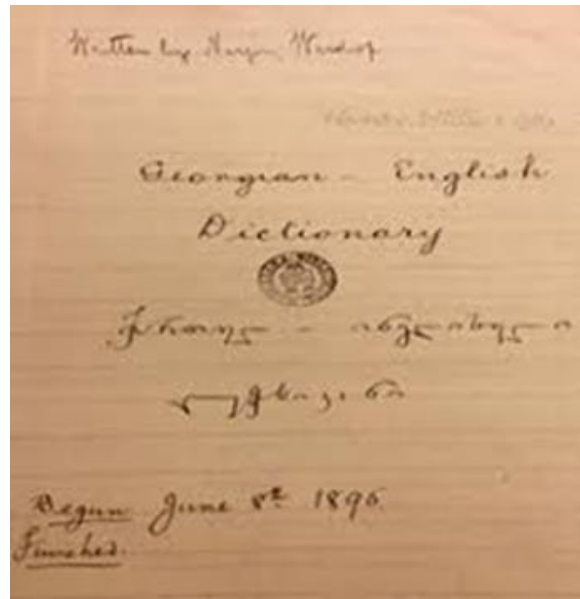 Written by Marjory Wardrop
Georgian - English
Dictionary
ქართულ - ინგლისული
ლექსიკონი
Begun June 8th 1895
Finished.